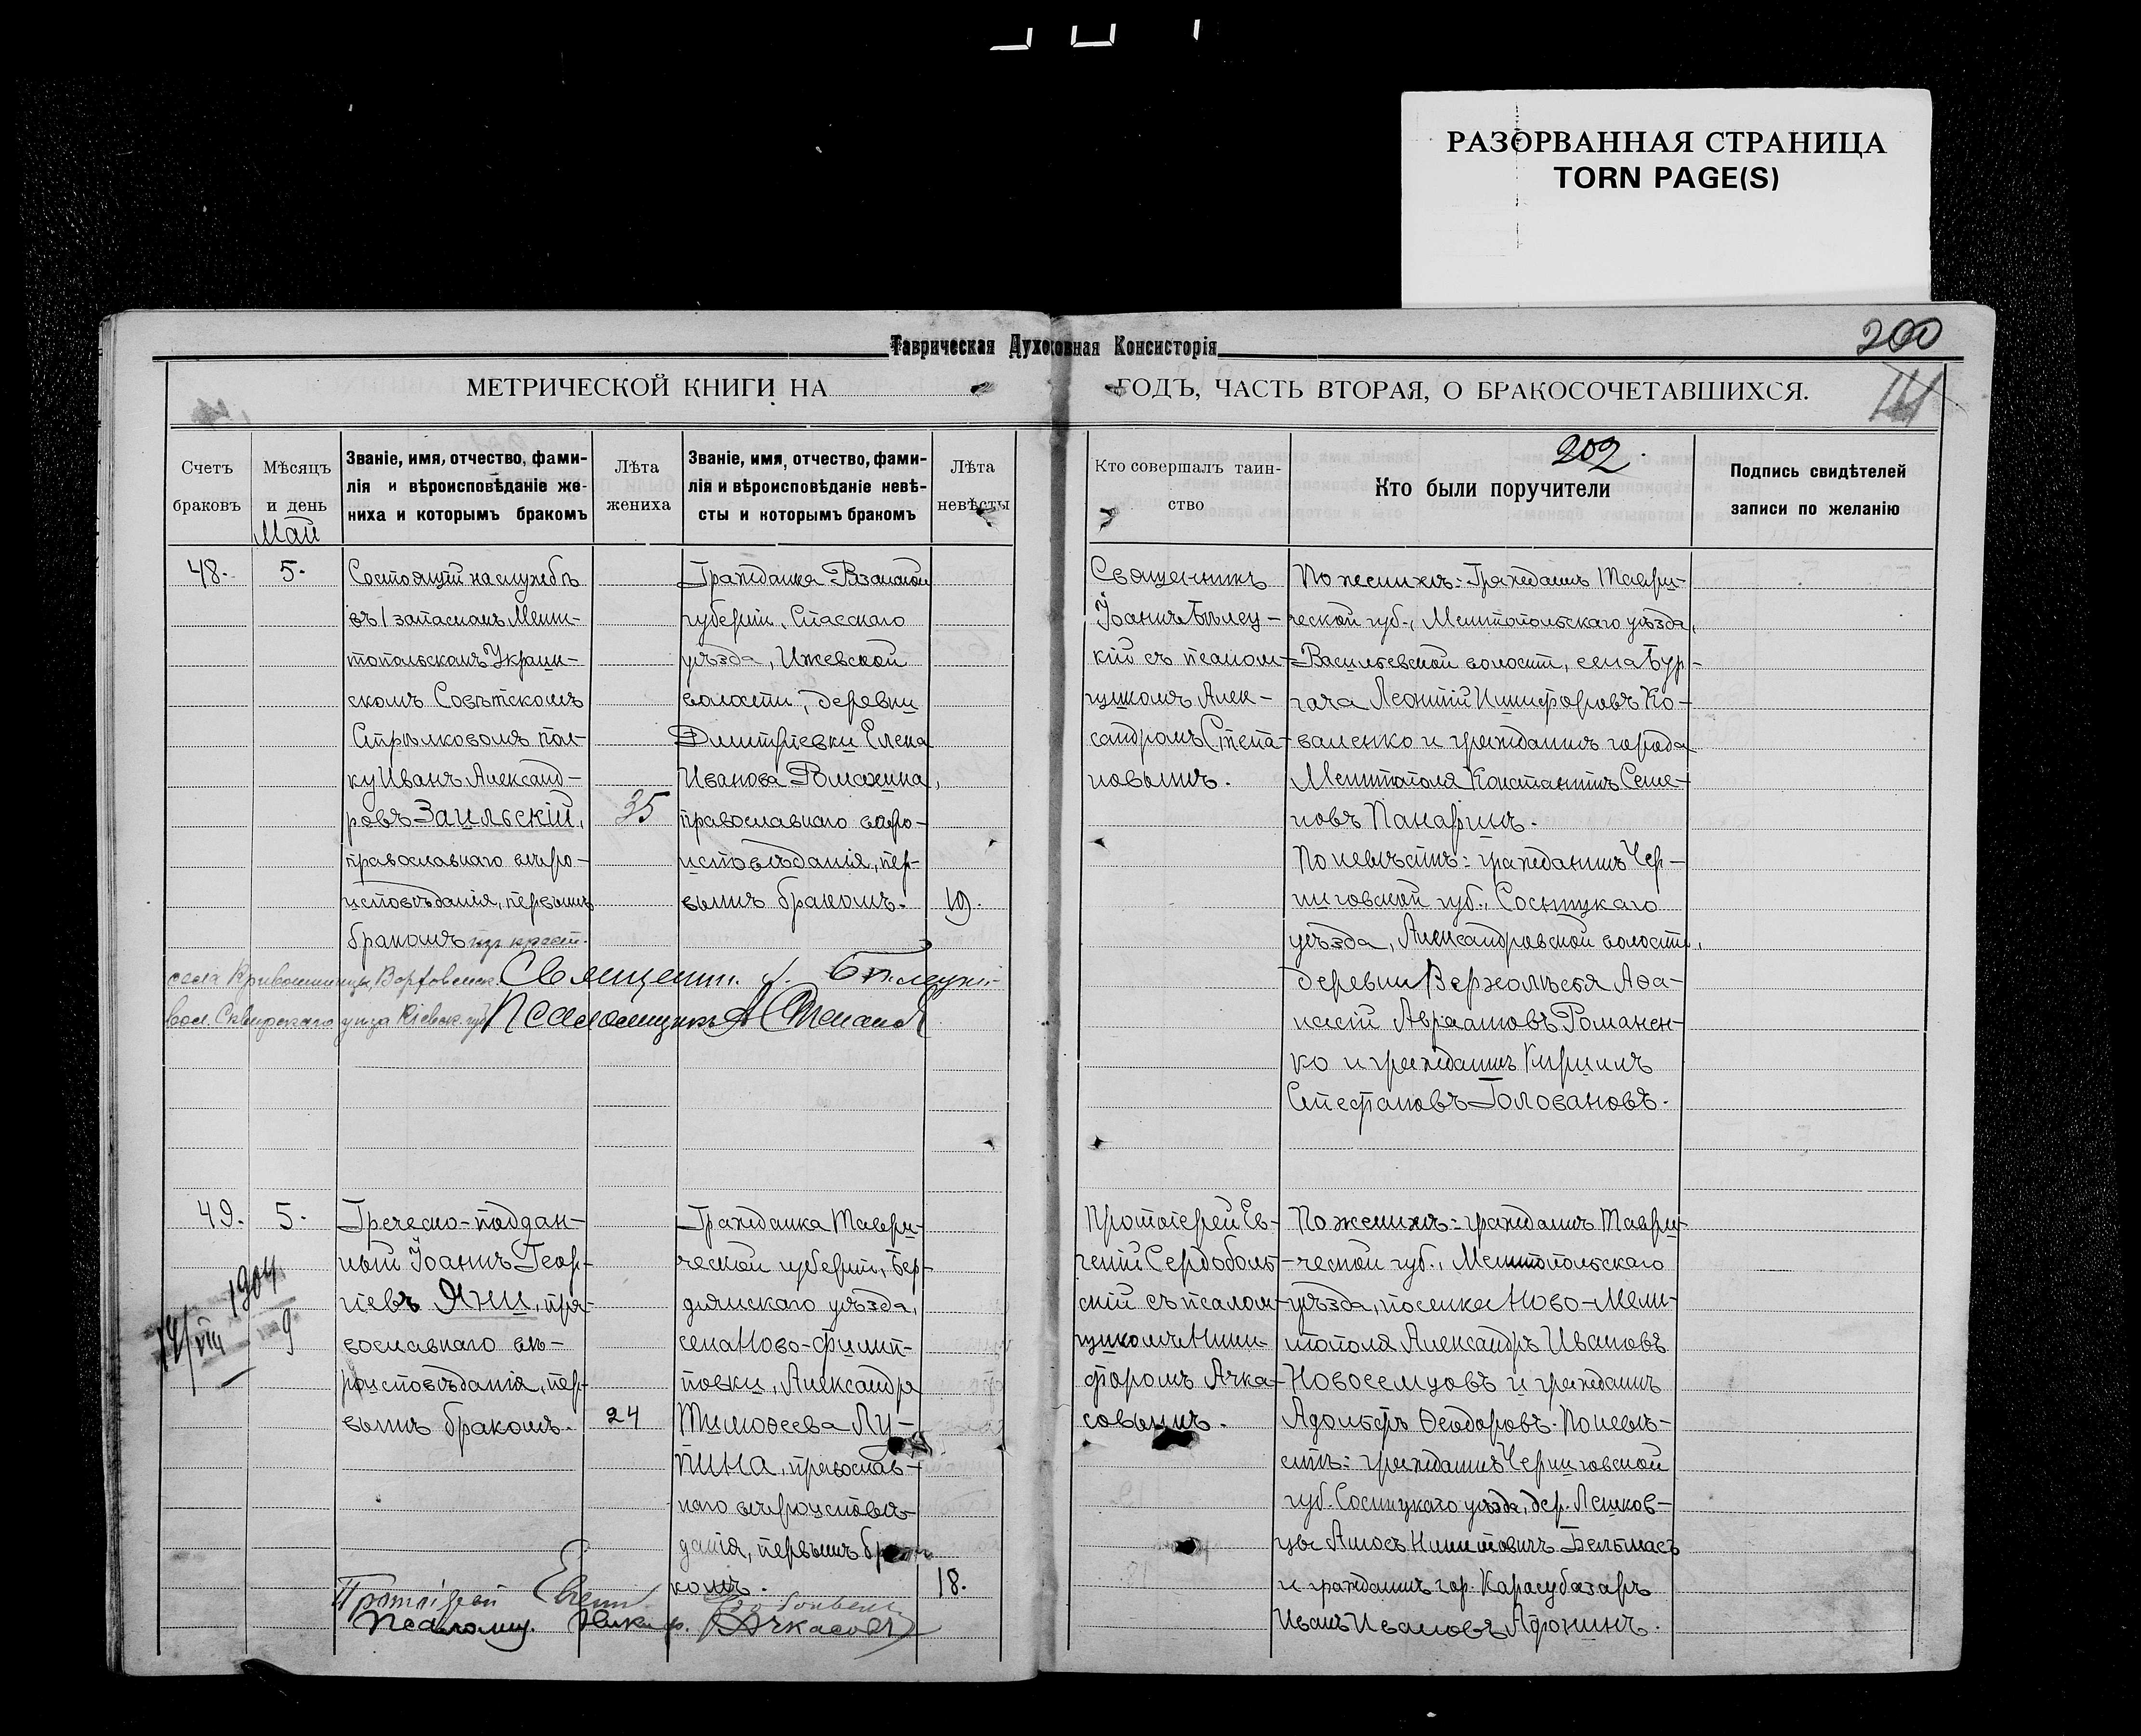 РАЗОРВАННАЯ СТРАНИЦА
TORN PAGE(S)
Таврическая Духовная Консисторія
200
МЕТРИЧЕСКОЙ КНИГИ НА
ГОДЪ, ЧАСТЬ ВТОРАЯ, О БРАКОСОЧЕТАВШИХСЯ.
202.
Счетъ
браковъ
Мѣсяцъ
и день
Май
Званіе, имя, отчество, фами-
лія и вѣроисповѣданіе же-
ниха и которымъ бракомъ
Лѣта
жениха
Званіе, имя, отчество, фами-
лія и вѣроисповѣданіе невѣ-
сты и которымъ бракомъ
Лѣта
невѣсты
Кто совершалъ таин-
ство
Кто были поручители
Подпись свидѣтелей
записи по желанію
48.
5.
Состоящій на службѣ
въ 1 запасномъ Мели-
топольскомъ Украин-
скомъ Совѣтскомъ
Стрѣлковомъ пол-
ку Иванъ Александ-
ровъ Заильскій,
православнаго вѣро-
исповѣданія, первымъ
бракомъ
35
Гражданка Рязанской
губерніи, Спасскаго
уѣзда, Ижевской
волости, деревни
Дмитріевки Елена
Иванова Ромохина,
православнаго вѣро-
исповѣданія, пер-
вымъ бракомъ.
19.
села Кривошеинцы,
вол. Сквирскаго уѣзда Кіевск. губ.
Священн. І. Бѣлецкій
Псаломщикъ А Степанов
Священникъ
Іоаннъ Бѣлец-
кій съ псалом-
щикомъ Алек-
сандромъ Степа-
новымъ.
По женихѣ: Гражданинъ Таври-
ческой губ., Мелитопольскаго уѣзда,
Васильевской волости, села Бур-
гача Леонтій Никифоровъ Ко-
валенко и гражданинъ города
Мелитополя Константинъ Семе-
новъ Панаринъ.
По невѣстѣ: гражданинъ Чер-
ниговской губ., Сосницкаго
уѣзда, Александровской волости,
деревни Вержолѣсья Аѳа-
насій Авраамовъ Романен-
ко и гражданинъ Кириллъ
Стефановъ Головановъ.
49.
5.
14/VIII 1904
9
Греческо-поддан-
ный Іоаннъ Геор-
гіевъ Яни, пра-
вославнаго вѣ-
роисповѣданія, пер-
вымъ бракомъ.
24
Гражданка Таври-
ческой губерніи, Бер-
дянскаго уѣзда,
села Ново-Филип-
повки, Александра
Тимоѳеева Лу-
пина, православ-
наго вѣроисповѣ-
данія, первымъ бра-
комъ.
18.
Протоіерей Евген.
Псаломщ. Никиф. Ачкасовъ
Протоіерей Ев-
геній Сердоболь-
скій съ псалом-
щикомъ Ники-
форомъ Ачка-
совымъ.
По женихѣ: гражданинъ Таври-
ческой губ., Мелитопольскаго
уѣзда, поселка Ново-Мели-
тополя Александръ Ивановъ
Новосемцовъ и гражданинъ
Адольфъ Ѳеодоровъ. По невѣ-
стѣ: гражданинъ Черниговской
губ. Сосницкаго уѣзда, дер. Лешков-
цы Амосъ Бельмасъ
и гражданинъ гор. Карасубазаръ
Иванъ Ивановъ Афонинъ.